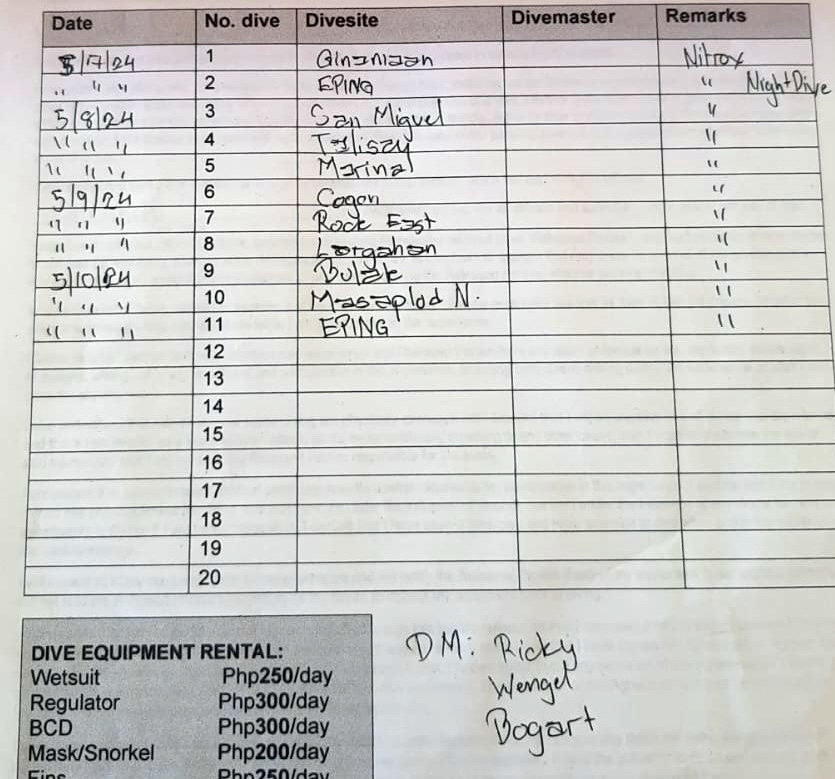 Date No. dive Divesite Divemaster Remarks
5/7/24 1 Ginanaan Nitrox
" " " 2 EPING " Night Dive
5/8/24 3 San Miguel "
" " " 4 Talisay "
" " " 5 Marinal "
5/9/24 6 Cogon "
" " " 7 Rock East "
" " " 8 Lorgahan "
5/10/24 9 Bulak "
" " " 10 Masaplod N. "
" " " 11 EPING "
12
13
14
15
16
17
18
19
20
DIVE EQUIPMENT RENTAL:
Wetsuit Php250/day
Regulator Php300/day
BCD Php300/day
Mask/Snorkel Php200/day
Fins Php250/day
DM: Ricky
Wengel
Bogart